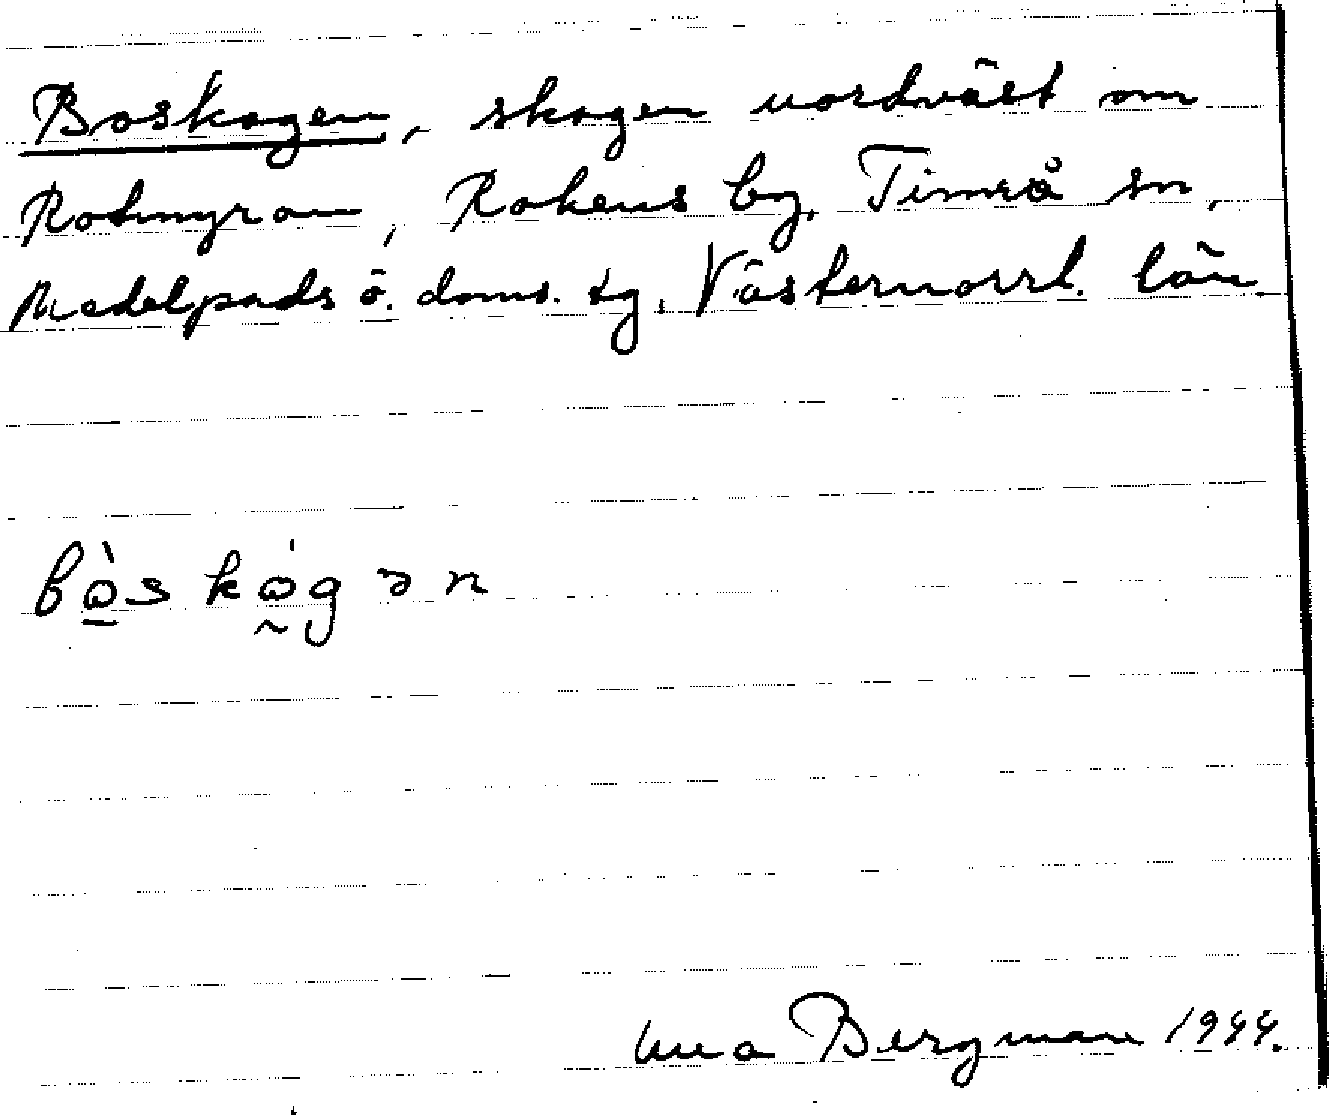 Boskogen, skogen nordväst om
Rotmyran, Rokens by, Timrå sn,
Medelpads ö. doms. tg. Västernorrl. län.
bò̱s kó̰g ə n
Bergman 1944.